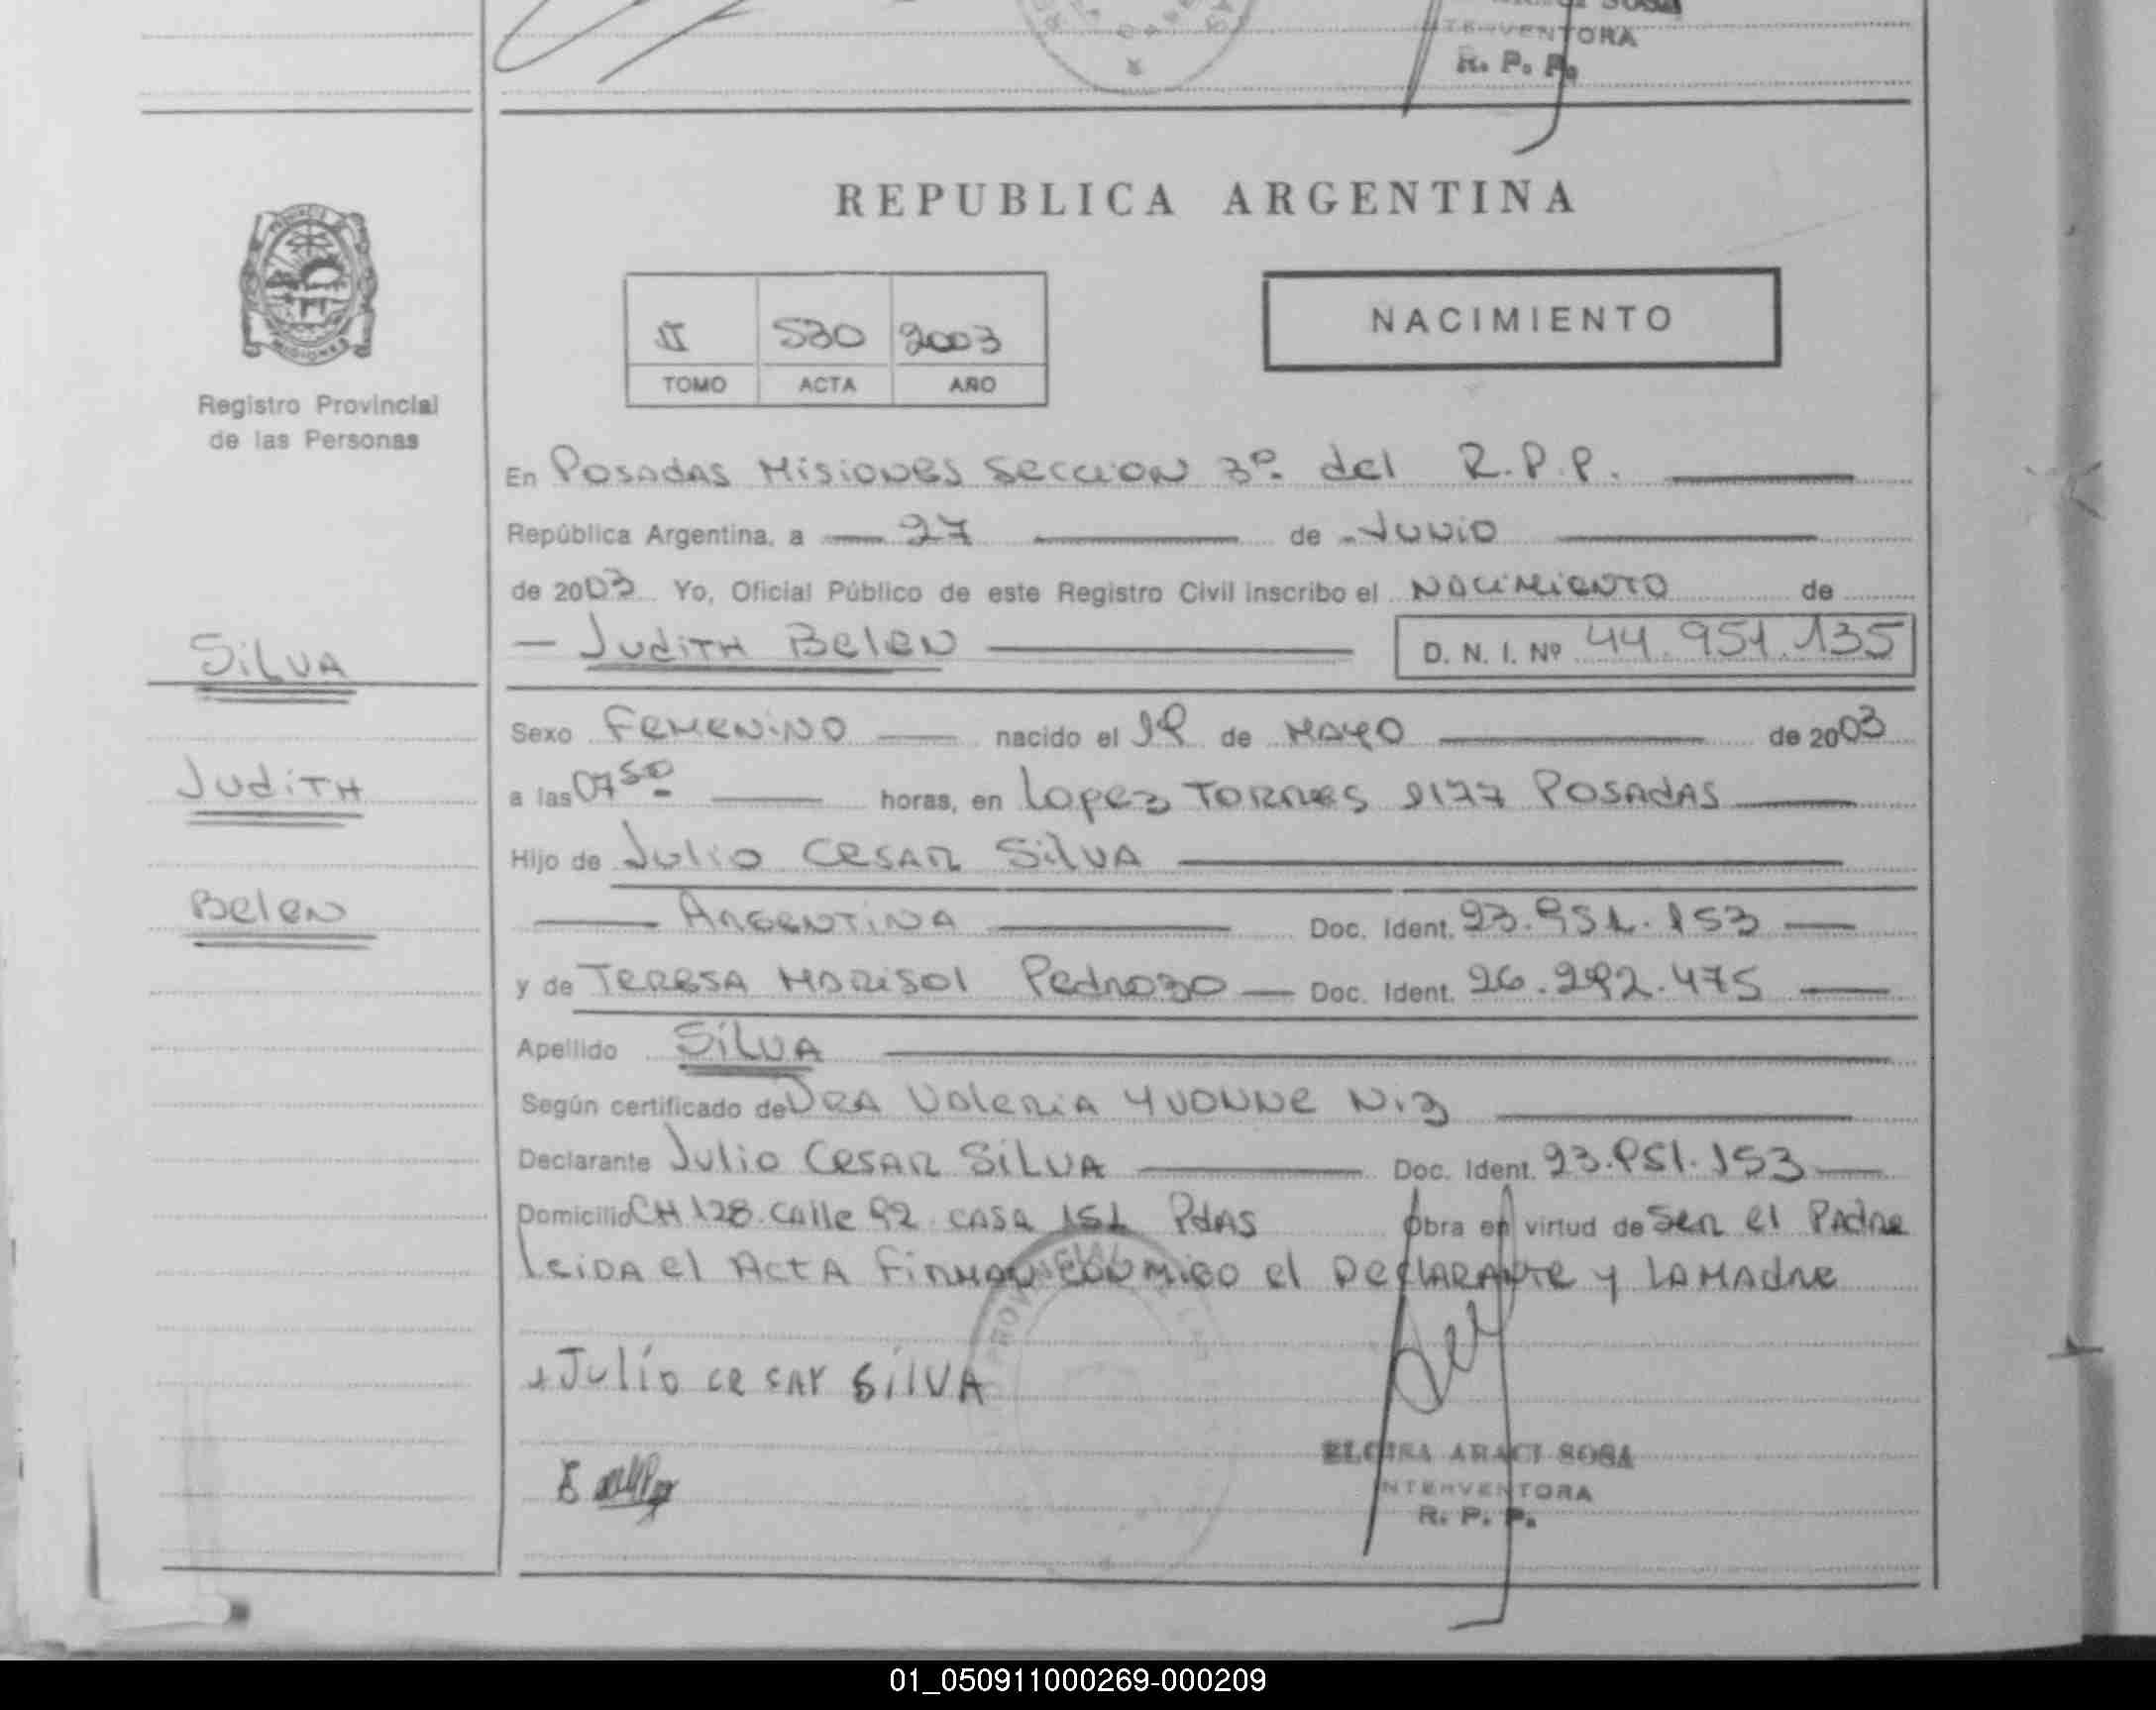 INTERVENTORA
R. P. P.
REPUBLICA ARGENTINA
II 530 2003
TOMO ACTA AÑO
NACIMIENTO
MISIONES
Registro Provincial
de las Personas
En Posadas Misiones Seccion 3º del R.P.P.
República Argentina, a 27 de Junio
de 2003 Yo, Oficial Público de este Registro Civil inscribo el Nacimiento de
Judith Belen D. N. I. Nº 44.951.135
Silva
Judith
Belen
Sexo Femenino nacido el 19 de Mayo de 2003
a las 07 50 horas, en Lopez Torres 2177 Posadas
Hijo de Julio Cesar Silva
Argentina Doc. Ident. 23.951.153
y de Teresa Marisol Pedrozo Doc. Ident. 26.292.475
Apellido Silva
Según certificado de Dra Valeria Yvonne Niz
Declarante Julio Cesar Silva Doc. Ident. 23.951.153
Domicilio CH 128 Calle 92 casa 151 Pdas Obra en virtud de Ser el Padre
leida el Acta Firman conmigo el Declarante y la Madre
Julio cesar silva
ELOISA ARACI SOSA
INTERVENTORA
R. P. P.
01_050911000269-000209